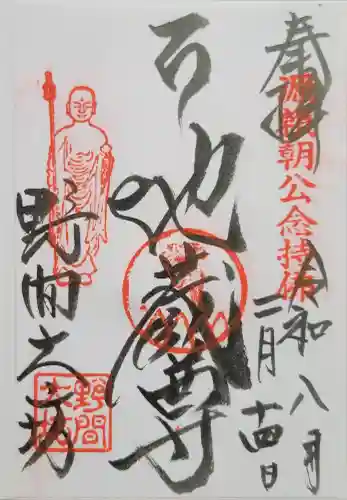 奉拝
源頼朝公念持佛
令和八年
二月十四日
地蔵尊
野間大坊
野間大坊